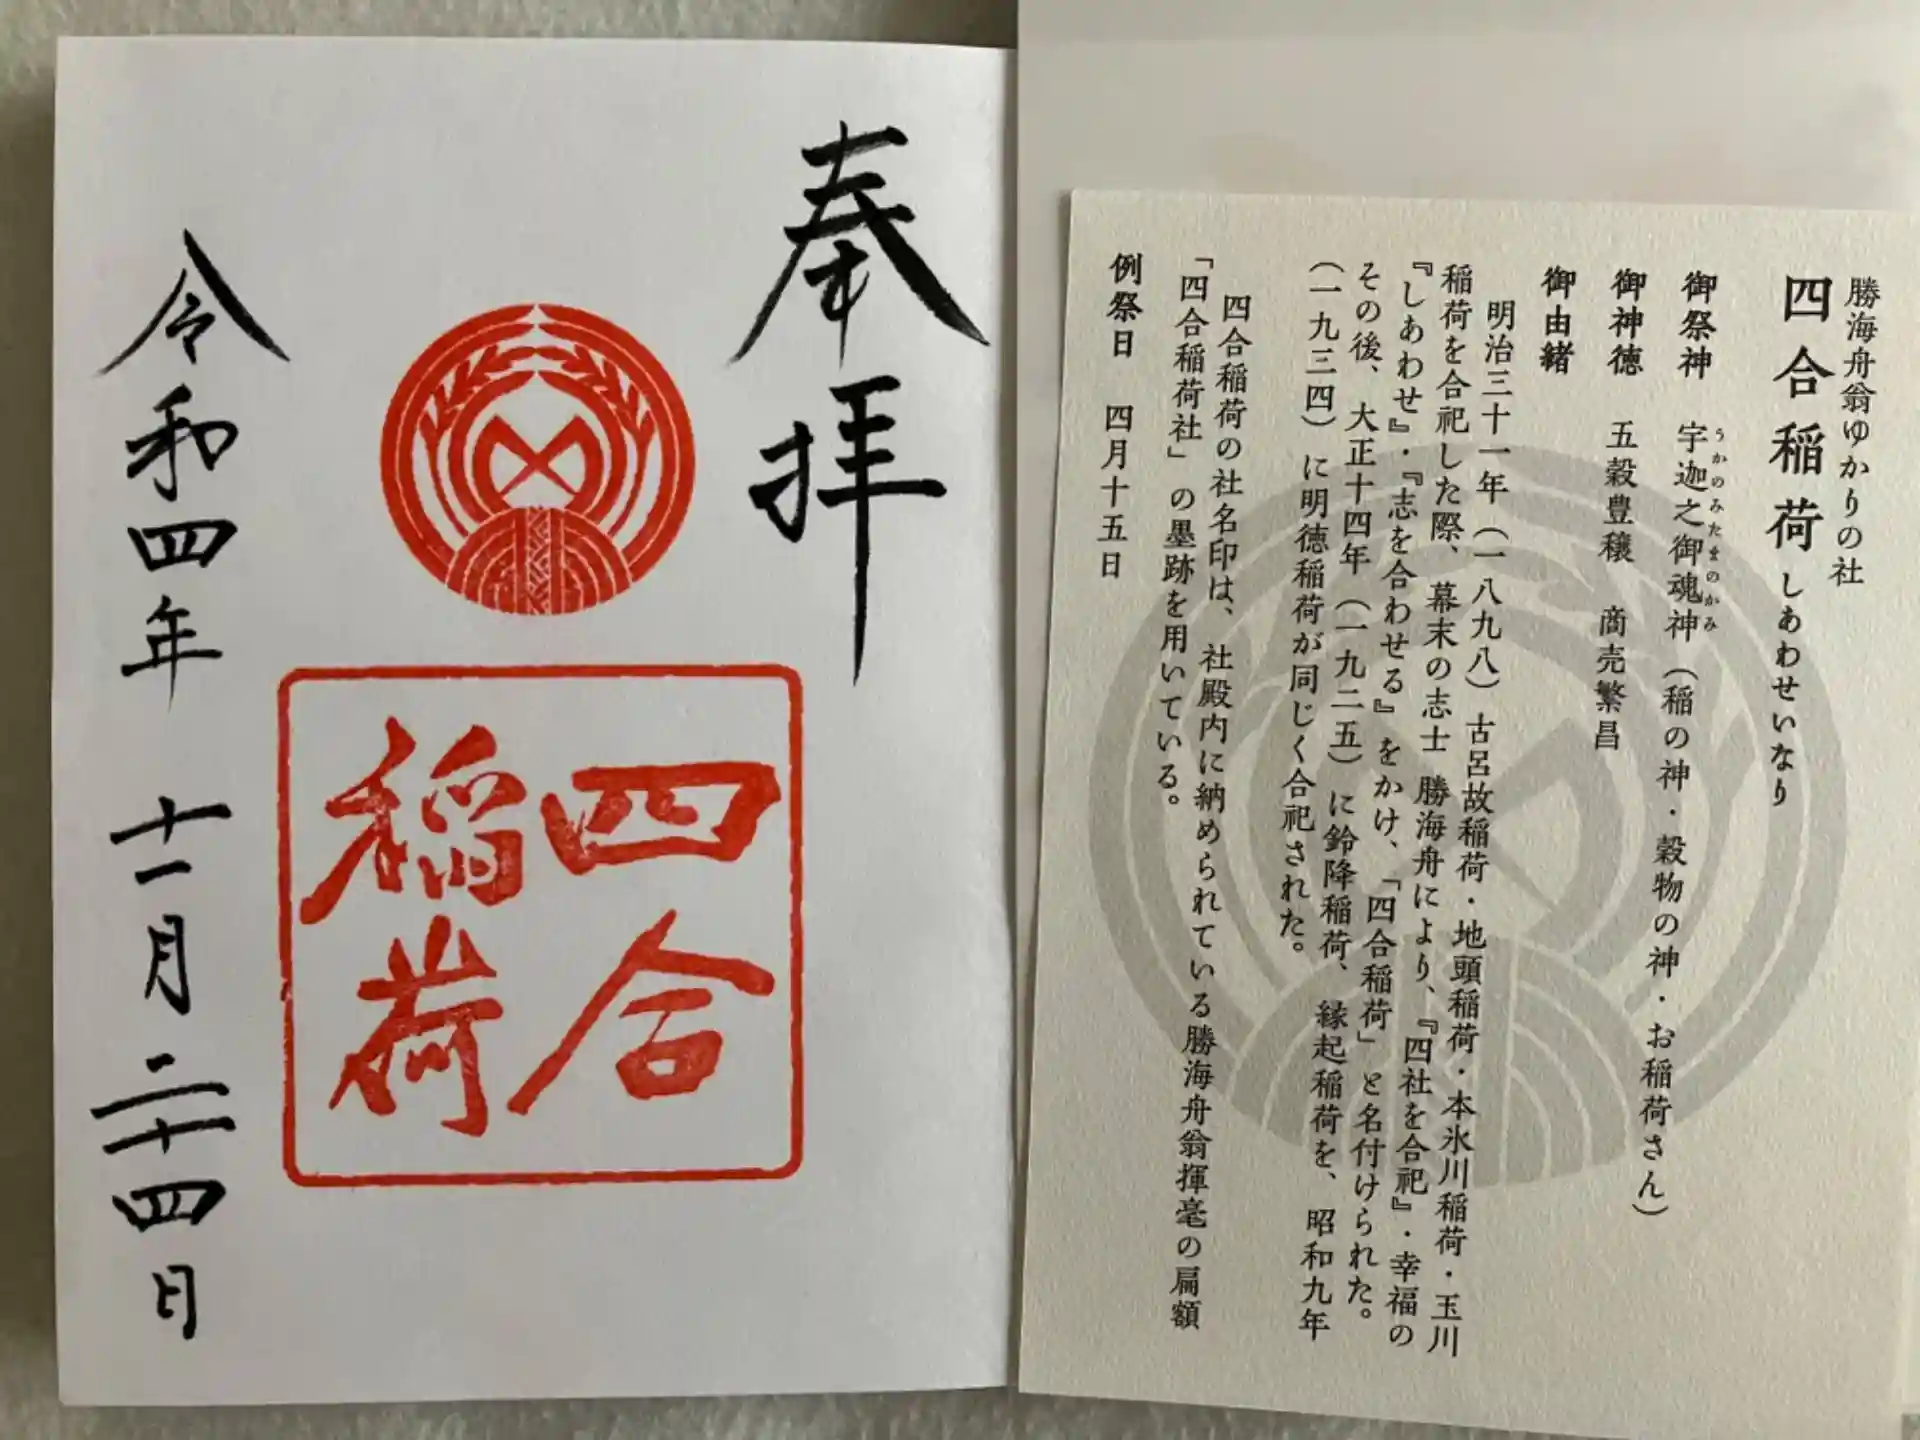 奉拝
四合
稲荷
令和四年 十一月 二十四日
勝海舟翁ゆかりの社
四合稲荷 しあわせいなり
御祭神 宇迦之御魂神(稲の神・穀物の神・お稲荷さん)
うかのみたまのかみ
御神徳 五穀豊穣 商売繁昌
御由緒
明治三十一年(一八九八)古呂故稲荷・地頭稲荷・本氷川稲荷・玉川
稲荷を合祀した際、幕末の志士 勝海舟により、『四社を合祀』・幸福の
『しあわせ』・『志を合わせる』をかけ、「四合稲荷」と名付けられた。
その後、大正十四年(一九二五)に鈴降稲荷、縁起稲荷を、昭和九年
(一九三四)に明徳稲荷が同じく合祀された。
四合稲荷の社名印は、社殿内に納められている勝海舟翁揮毫の扁額
「四合稲荷社」の墨跡を用いている。
例祭日 四月十五日